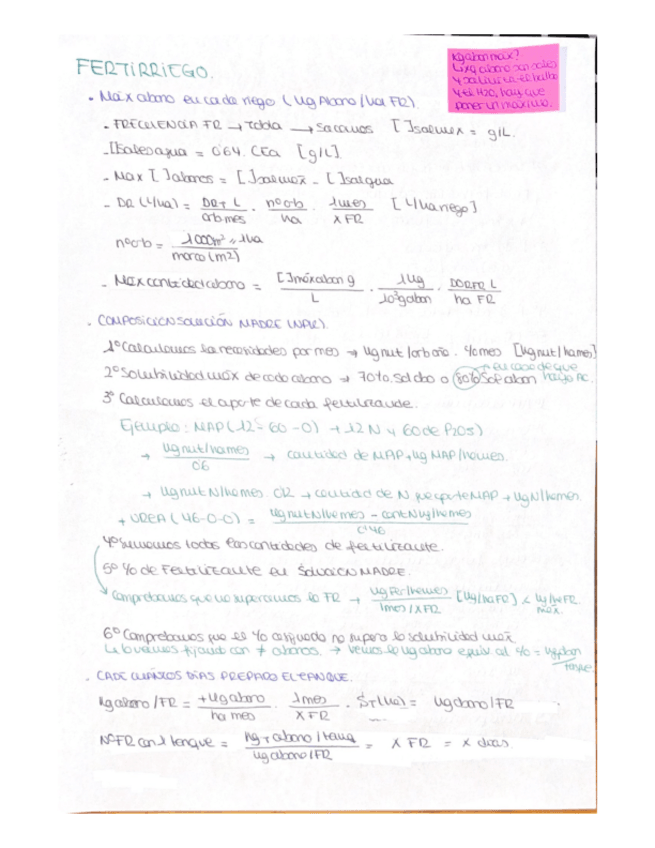 FERTIRRIEGO.
kg abon max?
y el H2O, hay que
poner un máximo.
. Máx abono en cada riego (kg Abono/ha FR).
- FRECUENCIA FR → Tabla → sacamos [ ]salmax = g/L.
- [ ]salesagua = 0'64. CEa [g/L]
- Max [ ]abonos = [ ]salmax - [ ]salgua
- DR (L/ha) = DRT L / arb mes . nºarb / ha . 1mes / X FR [L/ha riego]
nºarb = 10000m² ≈ 1ha / marco (m2)
- Max cantidad abono = [ ]máxabon g / L . 1kg / 10³gabon . L / ha FR
. COMPOSICIÓN SOLUCIÓN MADRE
1º Calculamos las necesidades por mes → kgnut/arb año . %mes [kgnut/hames]
2º Solubilidad máx de cada abono → 70% o 80% Sol abon
en caso de que haya AC.
3º Calculamos el aporte de cada fertilizante.
Ejemplo: MAP (12-60-0) → 12 N y 60 de P2O5)
→ kgnut/hames / 0'6 → cantidad de MAP → kg MAP/hames.
→ kgnutN/hames . 0'12 → cantidad de N que aporta MAP → kgN/hames.
+ UREA (46-0-0) = kgnutN/hames - cantNkg/hames / 0'46
4º Sumamos todas las cantidades de fertilizante.
5º % de Fertilizante en SOLUCIÓN MADRE.
Comprobamos que no superamos la FR → kgFer/hames / 1mes/XFR [kg/haFR] < kg/haFR max.
6º Comprobamos que el % no supera la solubilidad max.
Lo vamos fijando con ≠ abonos. → vemos kg abono equiv. al % = kgabon/tanque.
. CADA CUÁNTOS DÍAS PREPARO EL TANQUE.
kg abono/FR = +kg abono / ha mes . 1mes / X FR . ST (ha) = kg abono/FR
NºFR con 1 tanque = kgT abono/tanq / kg abono/FR = X FR = x días